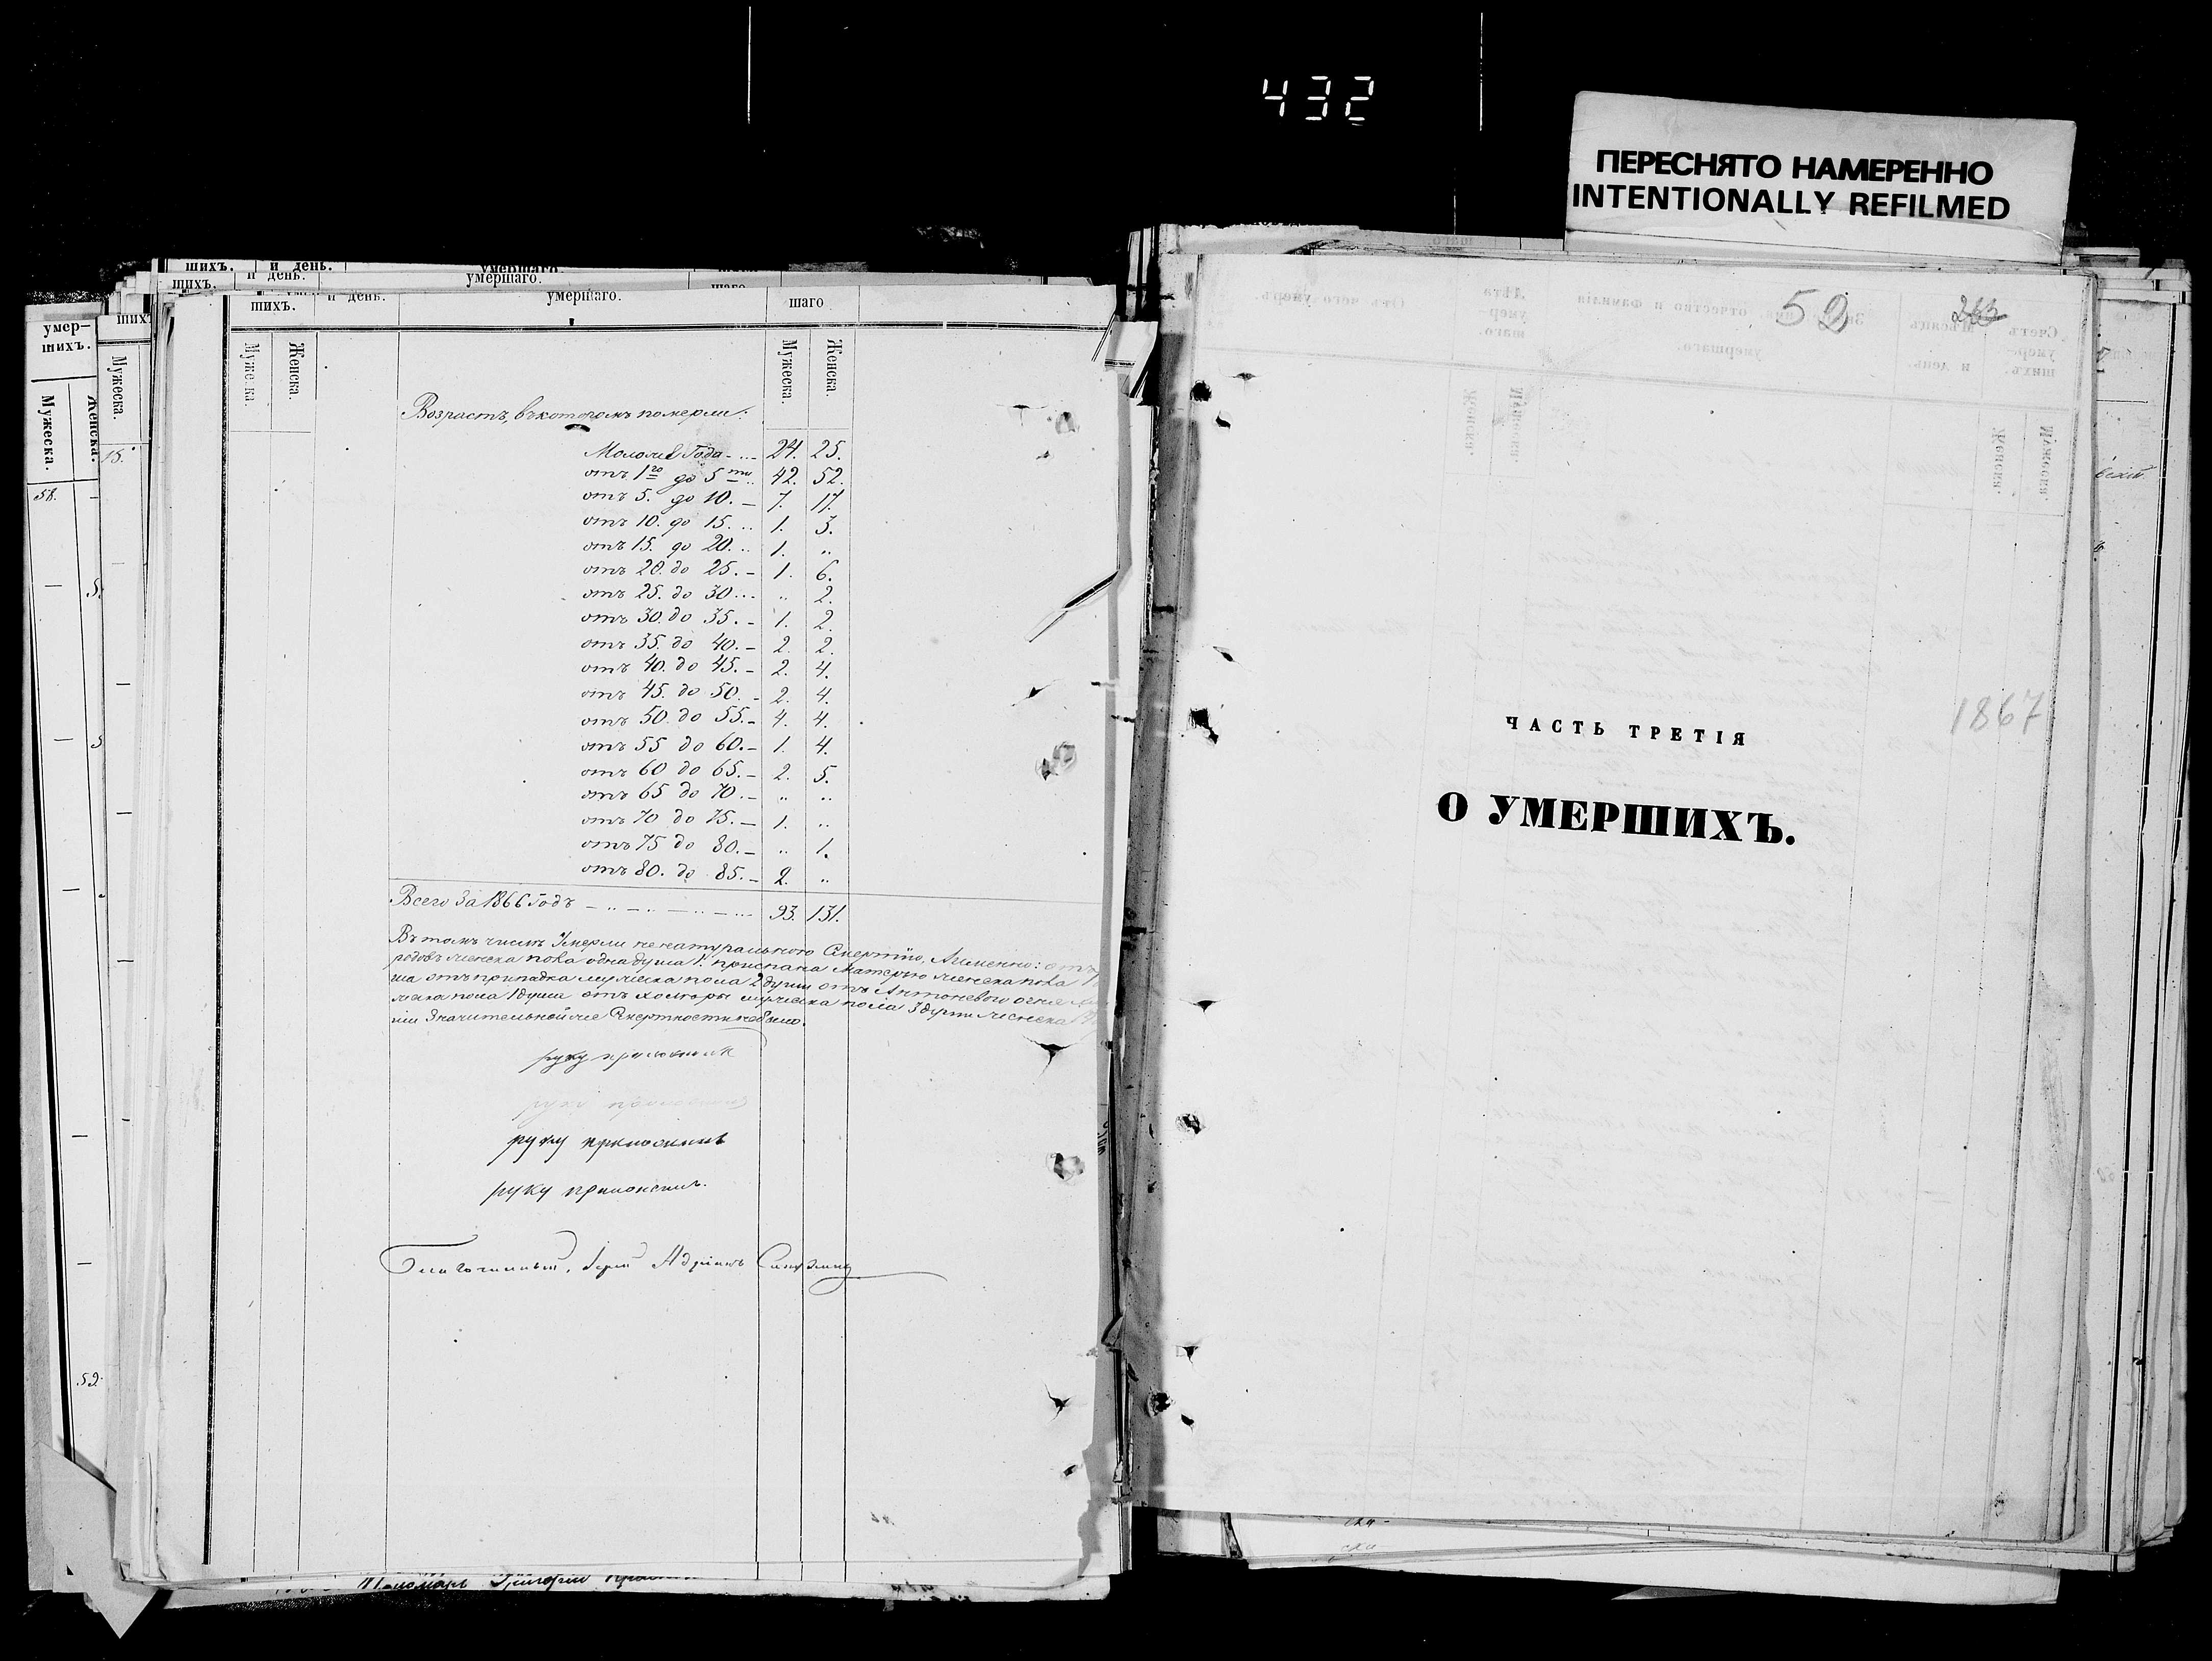 432
ПЕРЕСНЯТО НАМЕРЕННО
INTENTIONALLY REFILMED
шихъ. и день. умершаго.
шихъ. и день. умершаго. шаго
шихъ. и день. умершаго. шаго
умер-
шихъ.
Мужеска. Женска.
58.
5.
5
59.
шихъ
Мужеска.
15.
Мужеска. Женска. Мужеска. Женска.
Возрастъ, въ которомъ померли:
Моложе 1 Года - ... - 24. 25.
отъ 1го до 5ти .. 42. 52.
отъ 5. до 10. - 7. 17.
отъ 10. до 15. .. 1. 3.
отъ 15. до 20. .. 1. "
отъ 20. до 25. - 1. 6.
отъ 25. до 30 ... " 2.
отъ 30. до 35. - 1. 2.
отъ 35. до 40. - 2. 2.
отъ 40. до 45. - 2. 4.
отъ 45. до 50. - 2. 4.
отъ 50. до 55. - 4. 4.
отъ 55 до 60. - 1. 4.
отъ 60 до 65. - 2. 5.
отъ 65 до 70. - " "
отъ 70 до 75. - 1. "
отъ 75 до 80. - " 1.
отъ 80. до 85. - 2. "
Всего за 1866 годъ - .. - .. - .. - ... 93. 131.
Въ томъ числѣ Умерли ненатуральною Смертію, Аименно: отъ
родовъ женска пола одна душа 1. приспана Матерью женска пола 1
ша отъ припадка мужеска пола 2 души отъ Антоневого огня
жска пола 1 душа отъ холеры мужеска пола 3 души женска
Значительной же Смертности небыло.
руку приложилъ
руку приложилъ
руку приложилъ
руку приложилъ.
Благочинный, Іерей Адріанъ
Пономарь Григорій
52
263
1867
ЧАСТЬ ТРЕТІЯ
О УМЕРШИХЪ.